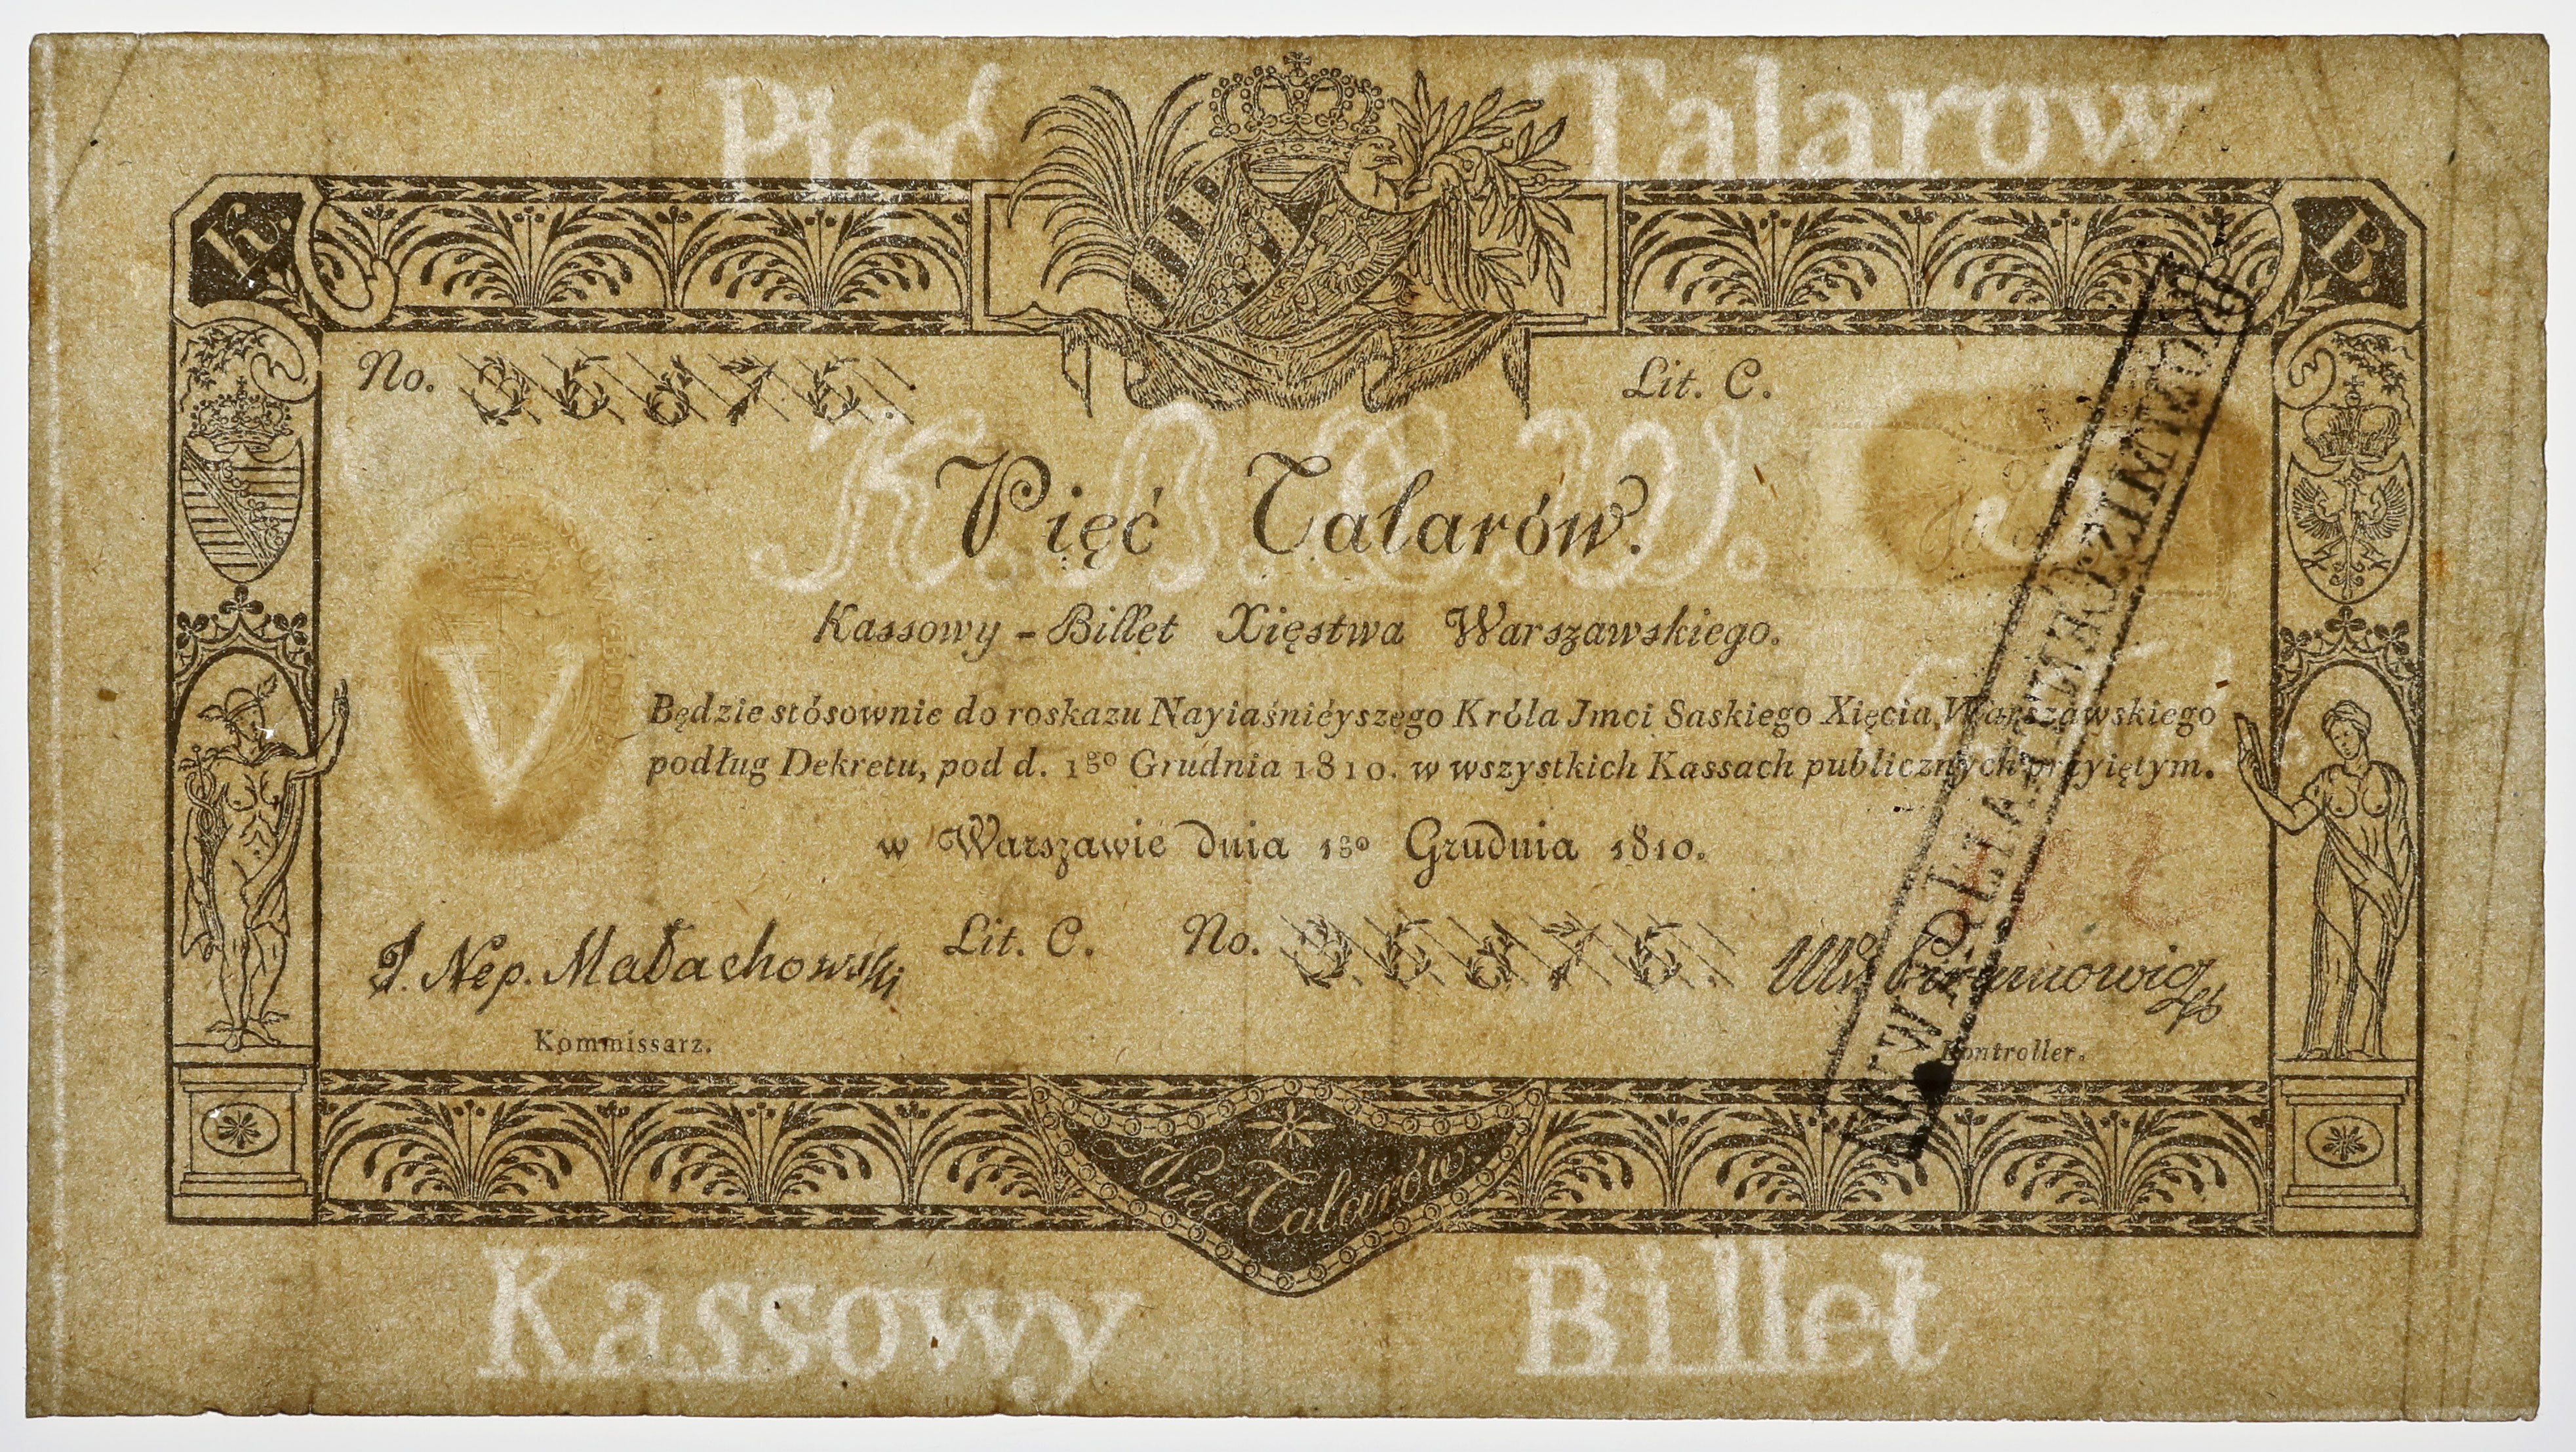 Pięć Talarow
K. B.
No. 36876. Lit. C.
K. B. X. W.
Pięć Talarów.
Kassowy - Billet Xięstwa Warszawskiego.
V
Będzie stósownie do roskazu Nayiaśniéyszego Króla Jmci Saskiego Xięcia Warszawskiego
podług Dekretu, pod d. 1go Grudnia 1810. w wszystkich Kassach publicznych przyiętym.
w Warszawie dnia 1go Grudnia 1810.
J. Nep. Małachowski Lit. C. No. 36876.
Kommissarz. Kontroller.
Pięć Talarów.
Kassowy Billet